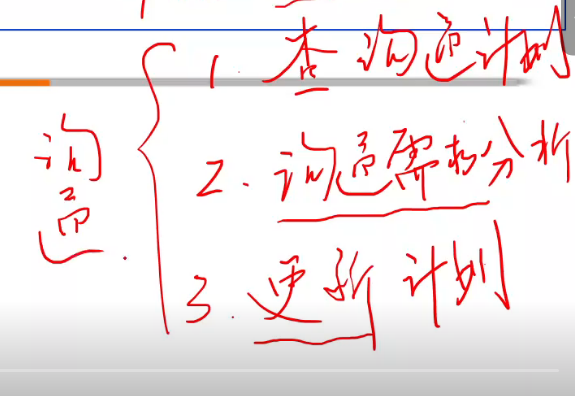 1. 查沟通计划
沟通
2. 沟通需求分析
3. 更新计划